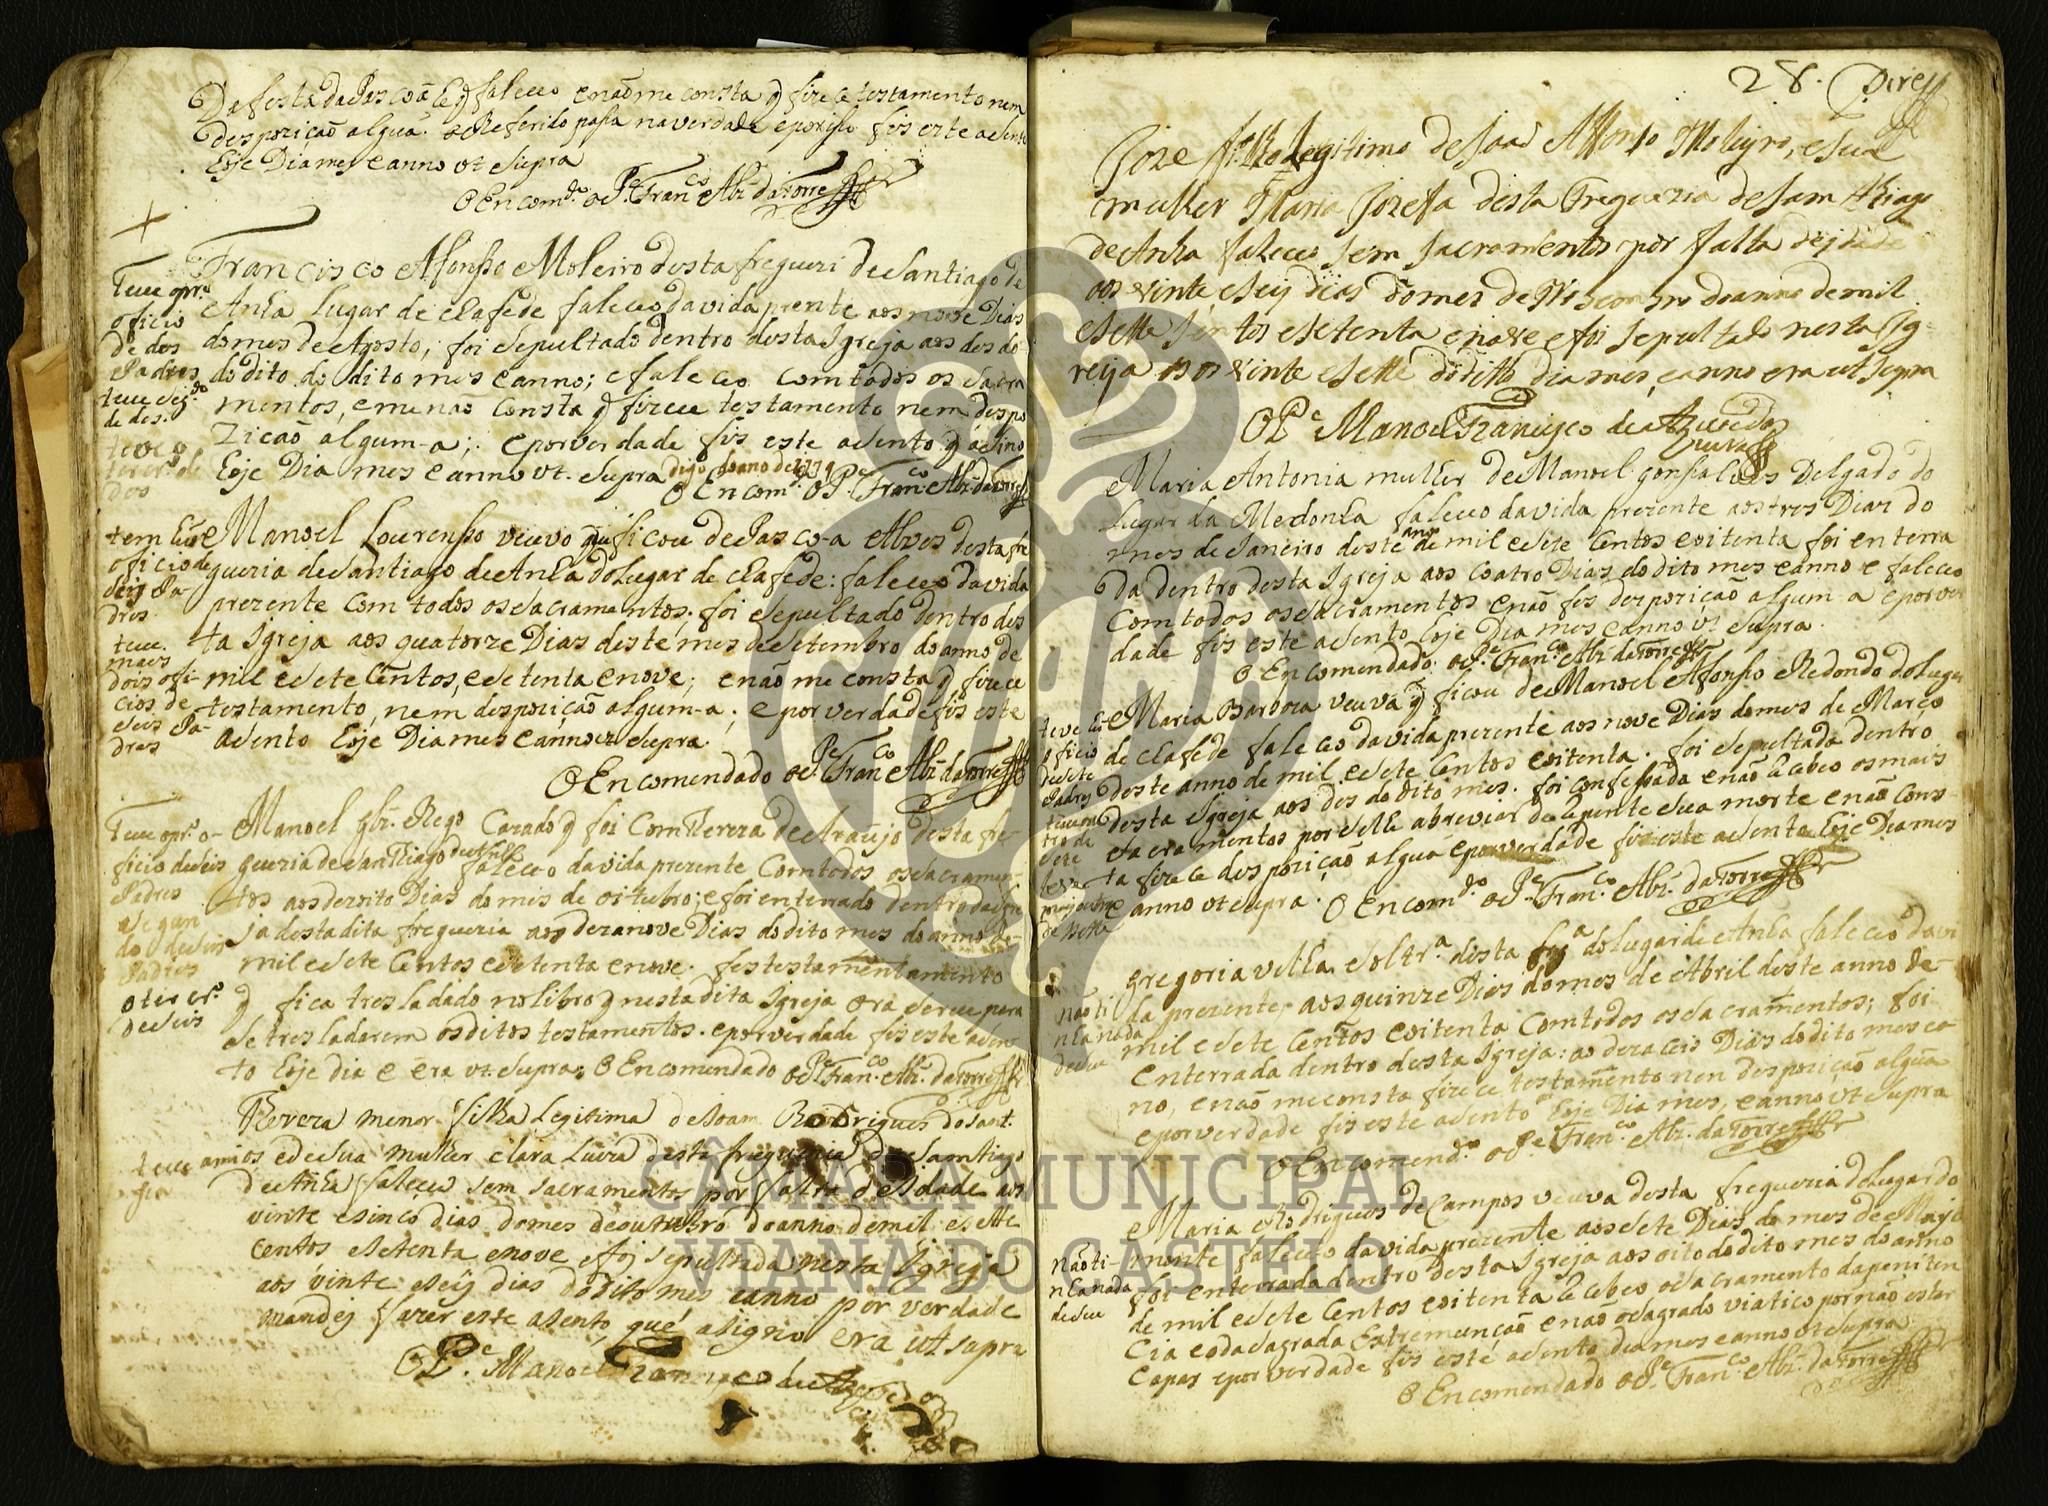 Da festa da Pascoa e q faleceo e não me consta q fizece testamento nem
despozição algũa. o Referido pasa na verdade e porisso fis este asento
Eoje Dia mes e anno ut supra
O Encom.do o P.e Fran.co Alz. da Torre
Francisco Afonsso Moleiro desta fregueri de Santiago de
Anha Lugar de Clafede faleceo da vida prente aos nove Dias
do mes de Agosto, foi sepultado dentro desta Igreja aos des do
do dito do dito mes e anno; e faleceo com todos os sacra
mentos, e me não consta q fizece testamento nem despo
zicaõ algum-a; e por verdade fis este asento q asino
Eoje Dia mes e anno vt. supra digo do ano de 1779
O Encom.do o P.e Fran.co Alz. da Torre
Teve o pr.o
oficio
de des
Padres
teve seg.do
de des.
teve o
Manoel Lourensso viuvo que ficou de Pascoa Alves desta fre
gueria de Santiago de Anha do Lugar de Clafede: faleceo da vida
prezente com todos os sacramentos. foi sepultado dentro des
ta Igreja aos quatorze Dias deste mes de Setembro do anno de
mil e sete centos, e setenta e nove; e não me consta q fizece
testamento, nem despozição algum-a; e por verdade fis este
asento Eoje Dia mes e anno ut supra.
O Encomendado o P.e Fran.co Alz. da Torre
tem hũ
oficio de
Padres
teve
mais
dois ofi-
cios de
seis Pa-
dres
Manoel Glz. Rego Cazado q foi com Thereza de Araujo desta fre-
gueria de Santiago de Anha faleceo da vida prezente Com todos os sacramen-
tos aos dezoito Dias do mes de oitubro; e foi enterrado dentro da Igre
ja desta dita fregueria aos dezanove Dias do dito mes do anno de-
mil e sete Centos e setenta e nove. fes testamento
q fica tresladado no libro q nesta dita Igreja ora serve pera
se tresladarem os ditos testamentos. e por verdade fis este asen
to Eoje dia e era vt. supra; O Encomendado o P.e Fran.co Alz. da Torre
Teve o pr.o o-
ficio de seis
Padres
segun
do de seis
Padres
o terçr.o
de seis
Tereza menor filha Legitima de Joam Rodrigues do Sant.
os e de sua mulher Clara Luiza desta freguezia de Samtiago
de Anha faleceu sem sacramentos por falta de Idade aos
vinte e sinco dias do mes de outubro do anno de mil e sette
centos e setenta e nove e foj sepultada nesta Igreja
aos vinte e seij dias do dito mes e anno por verdade
mandej fazer este asento que asigno era ut supra
O P.e Manoel Francisco de Azevedo
28. Pirez
Joze filho legitimo de Joaõ Affonso Moleyro, e sua
mulher Maria Jozefa desta Freguezia de Sam Thiago
de Anha faleceo sem sacramentos por falta de jdade
aos vinte e seij dias do mes de Novembro do anno de mil
e sette sentos e setenta e nove e foi sepultado nesta Ig=
reija aos vinte e sette do ditto dia mes, e anno era ut supra
O P.e Manoel Francisco de Azevedo
Maria Antonia mulher de Manoel gonsalves Delgado do
Lugar da Medonha faleceo da vida prezente aos tres Dias do
mes de Janeiro deste ano de mil e sete Centos e oitenta foi enterra
da dentro desta Igreja aos coatro Dias do dito mes e anno e faleceo
Com todos os sacramentos e não fes despozição algum-a e por ver
dade fis este asento Eoje Dia mes e anno vt. supra.
O Encomendado o P.e Fran.co Alz. da Torre
Maria Barboza veuva q ficou de Manoel Afonsso Redondo do Lugar
de Clafede faleceo da vida prezente aos nove Dias do mes de Março
deste anno de mil e sete Centos e oitenta. foi sepultada dentro
desta Igreja aos des do dito mes. foi confessada e não Recebeo os mais
sacramentos por se lhe abreviar de Repente sua morte e não cons-
ta fizece despozição algũa e por verdade fis este asento Eoje Dia mes
e anno ut supra. O Encom.do o P.e Fran.co Alz. da Torre
teve hũ
oficio
de sete
Padres
teve ou
tro de
sete
gregoria Velha Soltr.a desta frg.a do Lugar de Anha faleceo da vi
da prezente, aos quinze Dias do mes de Abril deste anno de-
mil e sete Centos e oitenta Com todos os sacramentos; foi
enterrada dentro desta Igreja: aos dezaceis Dias do dito mes e a
no, e não me consta fizece testamento nen despozição algũa
e por verdade fis este asento Eoje Dia mes, e anno vt supra
O Encomend.o o P.e Fran.co Alz. da Torre
não ti
nha nada
de seu
Maria Rodrigues de Campos veuva desta fregueria do Lugar do
monte faleceo da vida prezente aos sete Dias do mes de Majo
foi enterrada dentro desta Igreja aos oito do dito mes do anno
de mil e sete Centos e oitenta Recebeo o sacramento da peniten
cia e o da sagrada Extremunção e não o sagrado viatico por não estar
capas e por verdade fis este asento dia mes e anno ut supra
O Encomendado o P.e Fran.co Alz. da Torre
Não ti-
nha nada
de seu
CÂMARA MUNICIPAL
VIANA DO CASTELO